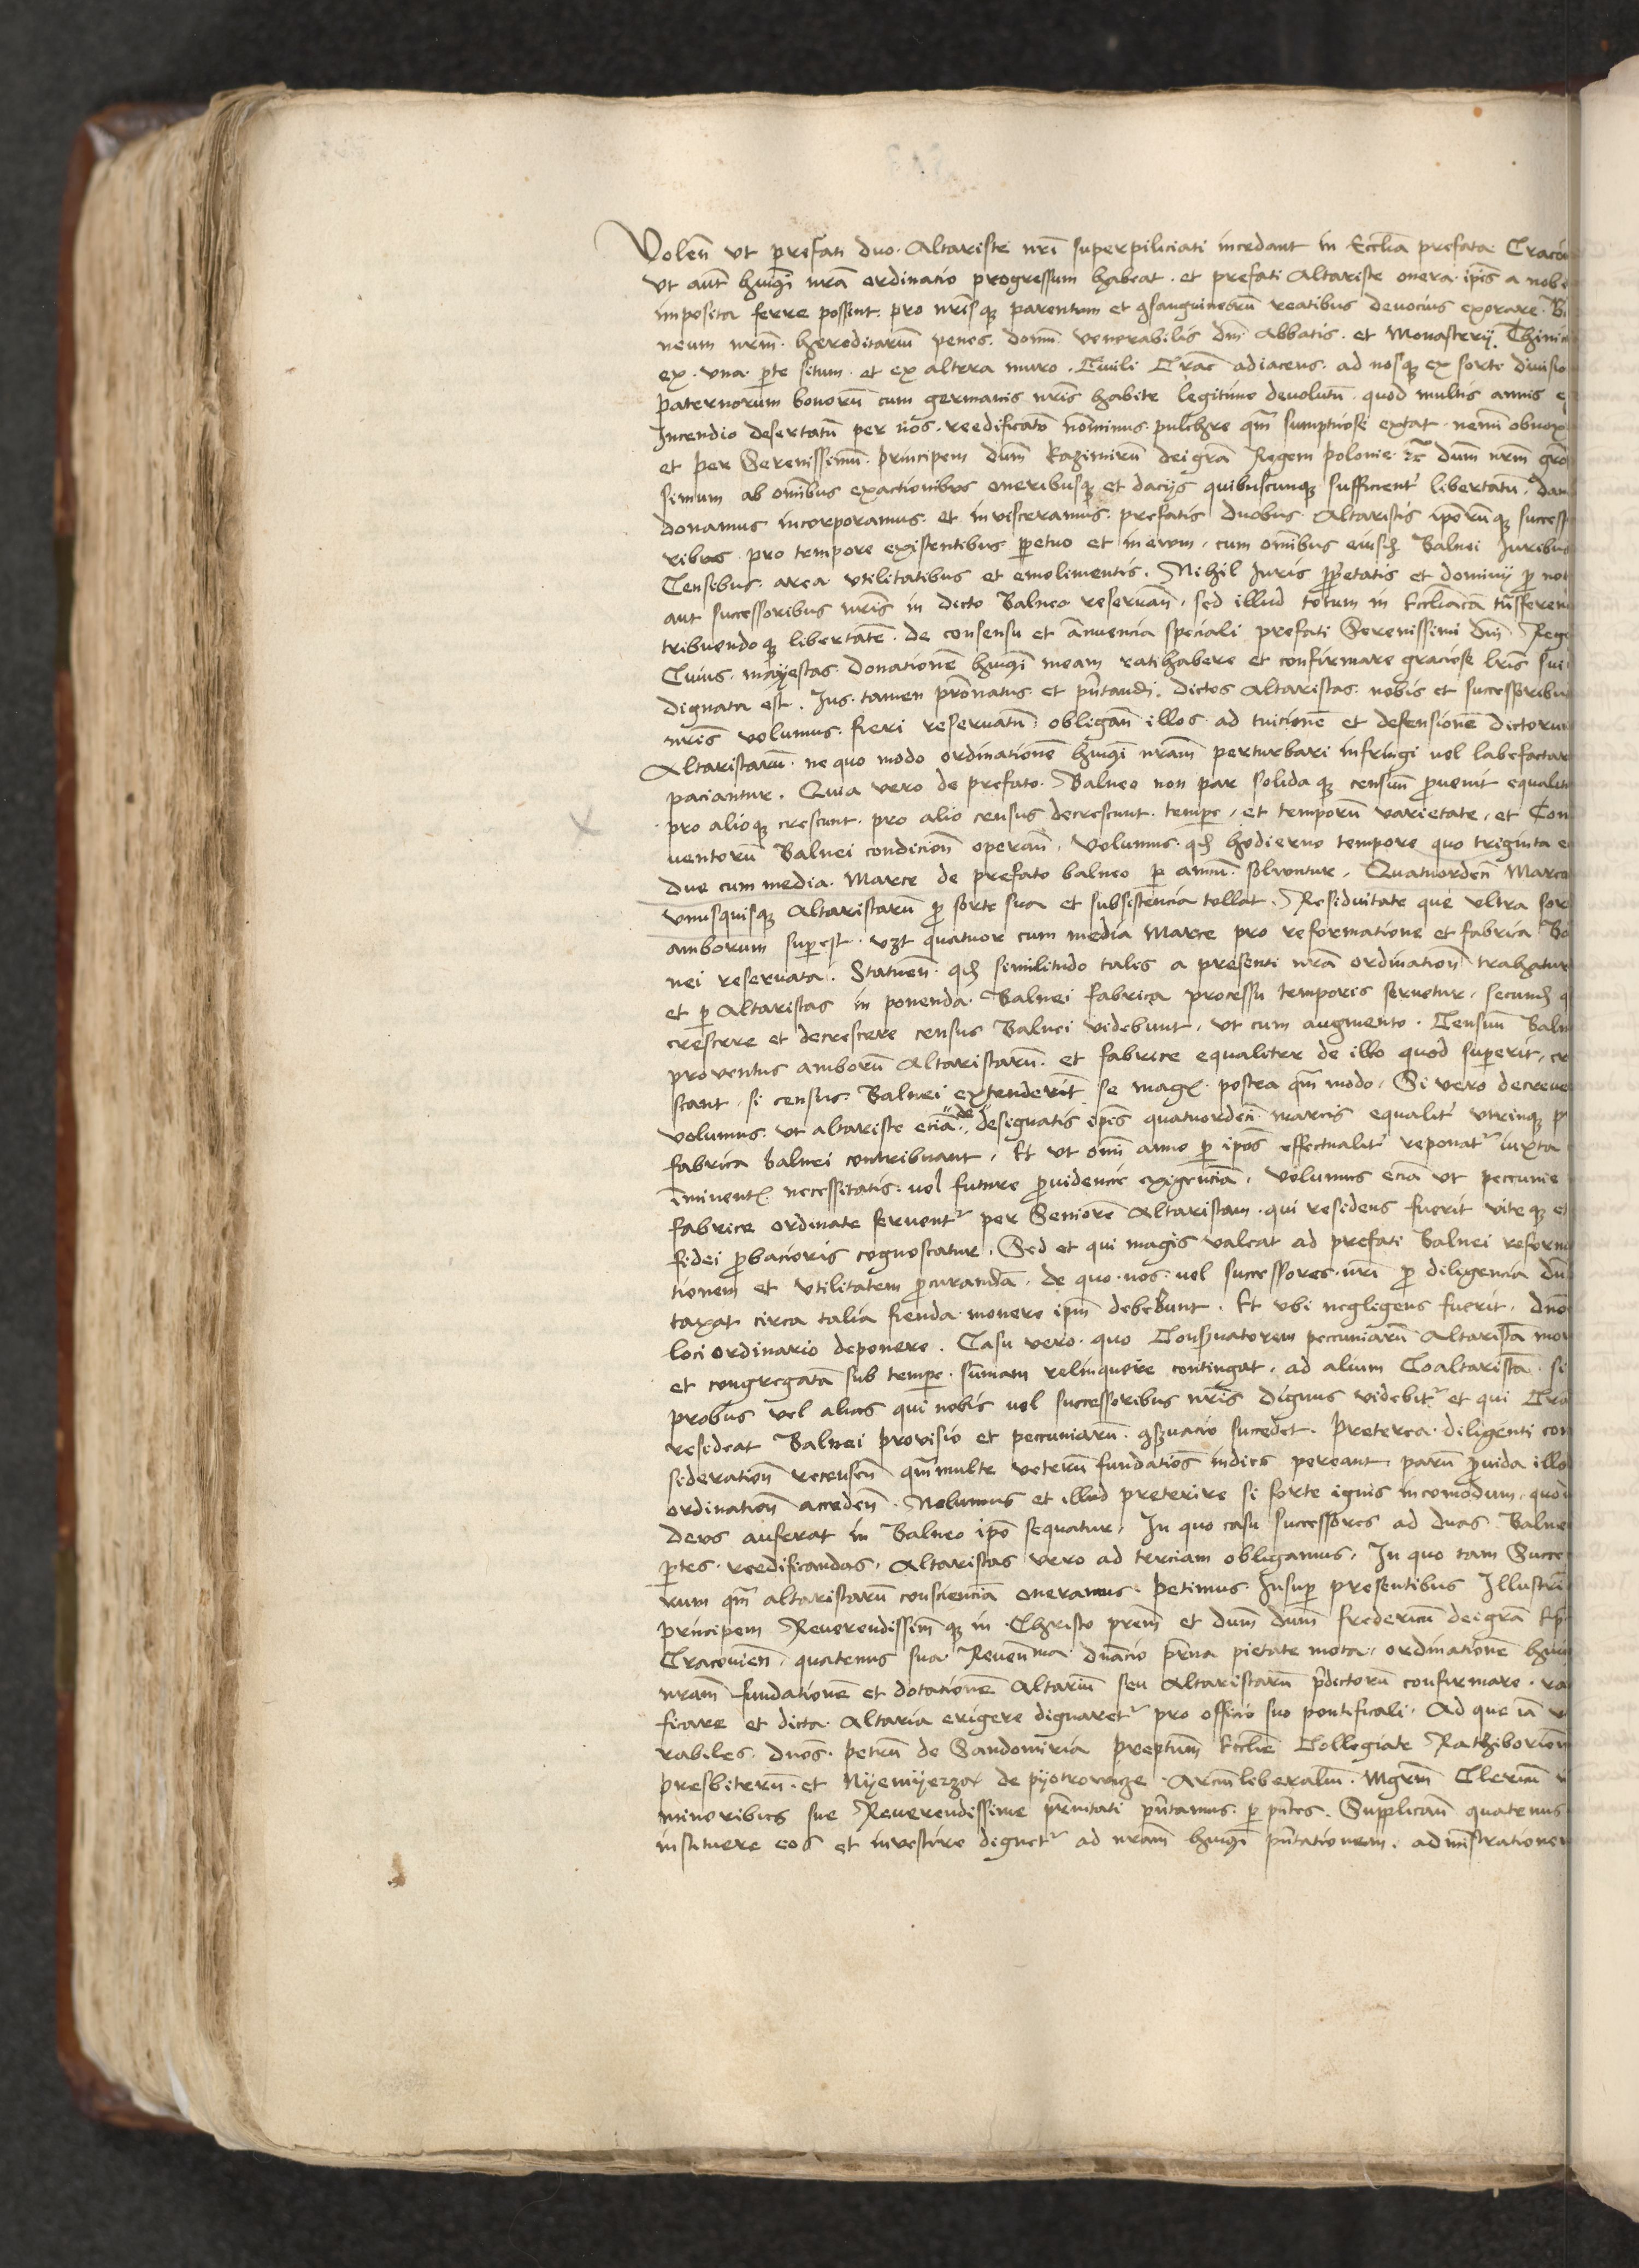 Volen̄ ut prefati duo Altariste nr̄i superpiliciati incedant in Ecclia prefata Craco
Ut aut̄ hmōi nrā ordinacio progressum habeat et prefati Altariste onera ip̄is a nob
imposita ferre possint pro nr̄isq parentum et ɔsanguineorū reatibus devocius exorare B
neum nrm̄ hereditariū penes domū venerabilis dn̄i Abbatis et Monasterij Thini
ex una pte situm et ex altera muro Civili Crac̄ adiacens ad nosq ex sorte divisio
paternorum bonorū cum germanis nr̄is habite legitime devolutū quod multis annis e
Incendio desertatū per nos reedificatō nominus pulchre qm̄ sumptuose extat nemī obnox
et per Serenissimū principem dūm Kazimirū dei grā Regem polonie &c̄ dūm nrm̄ gro
simum ab omībus exactionibus oneribusq et dacijs quibuscunq sufficient libertatū dam
donamus incorporamus et invisceramus prefatis duobus Altaristis ip̄orūq success
ribus pro tempore existentibus ppetuo et in evum cum omībus eiusd Balnei Iuribus
Censibus area utilitatibus et emolimentis Nihil Iuris ppetatis et dominij p nob
aut successoribus nr̄is in dicto Balneo reservan̄ sed illud totum in Eccliacā tn̄sferen
tribuendoq libertatē de consensu et annuencia speciali prefati Serenissimi dn̄i Reg
Cuius mayestas donationē hmōi meam ratihabere et confirmare graciose lr̄is sui
dignata est Jus tamen pr̄onatus et pn̄tandi dictos Altaristas nobis et successoribu
nr̄is volumus fieri reservatū obligan̄ illos ad tuicionē et defensionē dictorum
Altaristarū ne quo modo ordinationē hmōi nrām perturbari infringi vel labefactar
paciantur Quia vero de prefato Balneo non par solidaq censuū provenit equalit
pro alioq crescunt pro alio census decrescunt tempe et temporū varietate et Con
ventorū Balnei condicion̄ operan̄ Volumus qd hodierno tempore quo triginta e
due cum media Marce de prefato balneo p annū solvuntur Quatuordecī Marca
unusquisq Altaristarū p sorte sua et subsistencia tollat Residuitate que ultra sor
amborum supest vzt quatuor cum media Marce pro reformatione et fabrica Ba
nei reservata Statuen̄ qd similitudo talis a presenti nrā ordination̄ trahatur
et p Altaristas in ponenda Balnei fabrica processu temporis servetur secund q
crescere et decrescere census Balnei videbunt ut cum augmento Censuū Baln
proventus amborū Altaristarū et fabrice equaliter de illo quod superit cr
scant si census Balnei extenderit se mag postea qm̄ modo Si vero decreve
volumus ut altariste eciā de designatis ip̄is quatuordecī marcis equalit utrinq p
fabrica balnei contribuant Et ut omī anno p ip̄os effectualit reponat iuxta
iminent necessitatis vel future pvidencie exigenciā Volumus eciā ut peccunie
fabrice ordinate servent per Seniorē Altaristam qui residens fuerit viteq et
fidei pbacioris cognoscatur Sed et qui magis valeat ad prefati Balnei reforma
tionem et utilitatem pcurandā de quo nos vel successores nr̄i p diligencia dū
taxat circa talia fienda monere ipm̄ debebunt Et ubi negligens fuerit dn̄o
loci ordinario deponere Casu vero quo Conservatorem peccuniarū Altaristā mor
et congregatā sub tempe sūmam relinquere contingat ad alium Coaltaristā si
probus vel alias qui nobis vel successoribus nr̄is dignus videbit et qui Cra
resideat Balnei provisio et peccuniarū ɔservacio succedet Preterea diligenti con
sideration̄ recensen̄ qm̄ multe veterū fundatiōs indies pereant parū pvida illo
ordination̄ acceden̄ Nolumus et illud preterire si forte ignis incomodum quod
deus auferat in Balneo ip̄o sequatur In quo casu successores ad duas Balne
ptes reedificandas Altaristas vero ad terciam obligamus In quo tam Succe
rum qm̄ altaristarū conscienciā oneramus Petimus Insup presentibus Illustri
principem Reverendissimq in Christo prem̄ et dūm dūm fredericū dei grā Ep
Cracovien̄ quatenus sua Reven̄ma dn̄acio pr̄na pietate mota ordinationē hm
nrām fundationē et dotationē Altariū seu Altaristarū pdictorū confirmare ra
ficare et dicta Altaria erigere dignaret pro officio suo pontificali Ad que iā v
rabiles dn̄os petrū de Sandomiria preptum̄ Ecclie Collegiate Rathiborien̄
presbiterū et Nyemyerza de pyotrowicze Arciū liberaliū Mgrm̄ Clericū i
minoribus sue Reverendissime pr̄nitati pn̄tamus p pn̄tes Supplican̄ quatenus
instituere eos et investire dignet ad nrām hmōi pn̄tationem administrationem